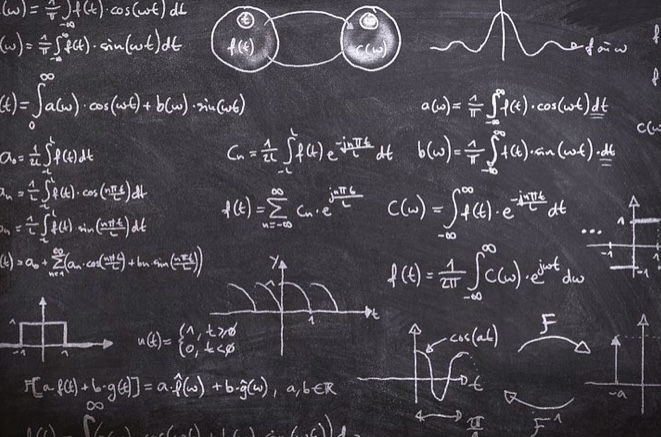 (ω) = 1/π ∫_{-∞}^{∞} f(t)·cos(ωt) dt
(ω) = 1/π ∫_{-∞}^{∞} f(t)·sin(ωt) dt
t
f(t)
c(ω)
(t) = ∫_0^∞ a(ω)·cos(ωt) + b(ω)·sin(ωt)
a(ω) = 1/π ∫_{-∞}^{∞} f(t)·cos(ωt) dt
a₀ = 1/2L ∫_{-L}^{L} f(t) dt
Cn = 1/2L ∫_{-L}^{L} f(t) e^{-jnπt/L} dt
b(ω) = 1/π ∫_{-∞}^{∞} f(t)·sin(ωt)·dt
an = 1/L ∫_{-L}^{L} f(t)·cos(nπt/L) dt
bn = 1/L ∫_{-L}^{L} f(t) sin(nπt/L) dt
f(t) = ∑_{n=-∞}^{∞} Cn·e^{jnπt/L}
C(ω) = ∫_{-∞}^{∞} f(t)·e^{-jnπt/L} dt
(t) = a₀ + ∑_{n=1}^{∞} (an·cos(nπt/L) + bn·sin(nπt/L))
f(t) = 1/2π ∫_{-∞}^{∞} C(ω)·e^{jωt} dω
...
1
-1
1
y
1
t
1
-1
1
u(t) = {1, t≥0
0, t<0
cos(at)
t
π
F
F⁻¹
-a
F[a·f(t) + b·g(t)] = a·f̂(ω) + b·ĝ(ω), a,b∈ℝ